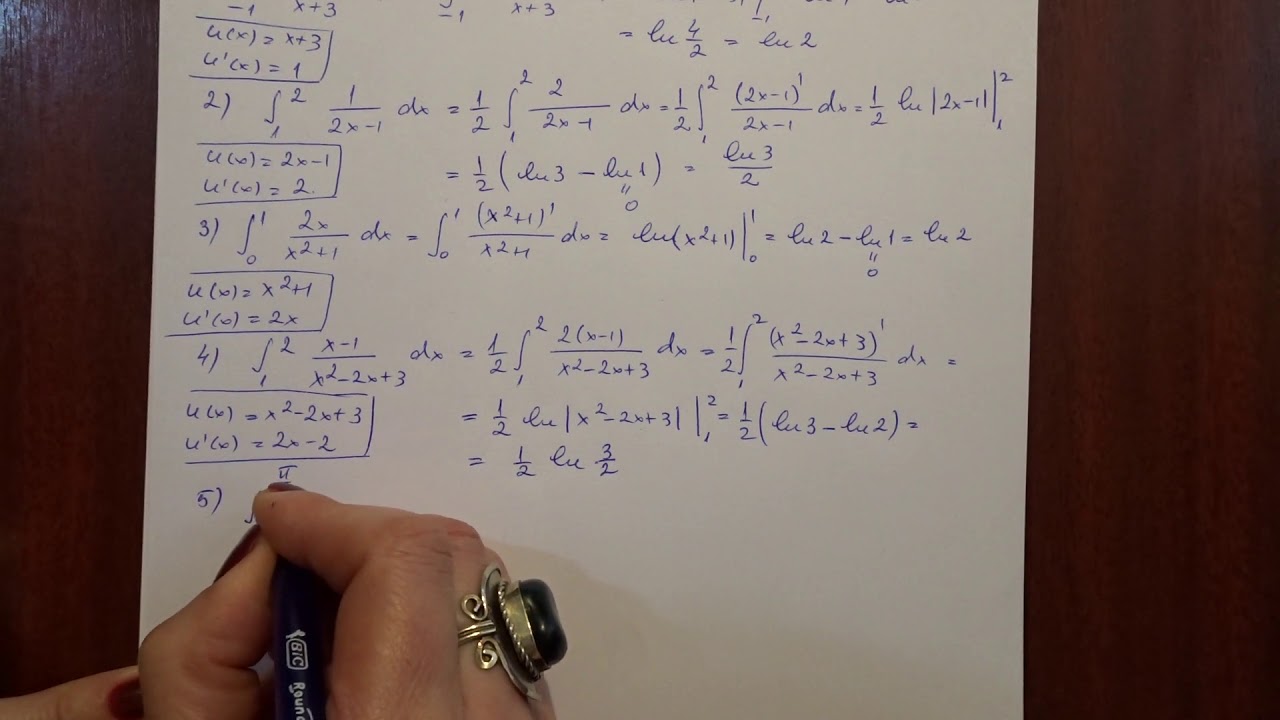 -1 x+3 -1 x+3
u(x) = x+3 = ln 4/2 = ln 2
u'(x) = 1
2) ∫₁² 1/(2x-1) dx = 1/2 ∫₁² 2/(2x-1) dx = 1/2 ∫₁² (2x-1)'/(2x-1) dx = 1/2 ln |2x-1| |₁²
u(x) = 2x-1 = 1/2 (ln 3 - ln 1) = ln 3/2
u'(x) = 2. " 0
3) ∫₀¹ 2x/(x²+1) dx = ∫₀¹ (x²+1)'/(x²+1) dx = ln(x²+1) |₀¹ = ln 2 - ln 1 = ln 2
" 0
u(x) = x²+1
u'(x) = 2x
4) ∫₁² (x-1)/(x²-2x+3) dx = 1/2 ∫₁² 2(x-1)/(x²-2x+3) dx = 1/2 ∫₁² (x²-2x+3)'/(x²-2x+3) dx =
u(x) = x²-2x+3 = 1/2 ln |x²-2x+3| |₁² = 1/2 (ln 3 - ln 2) =
u'(x) = 2x-2 = 1/2 ln 3/2
5) ∫ π
BIC